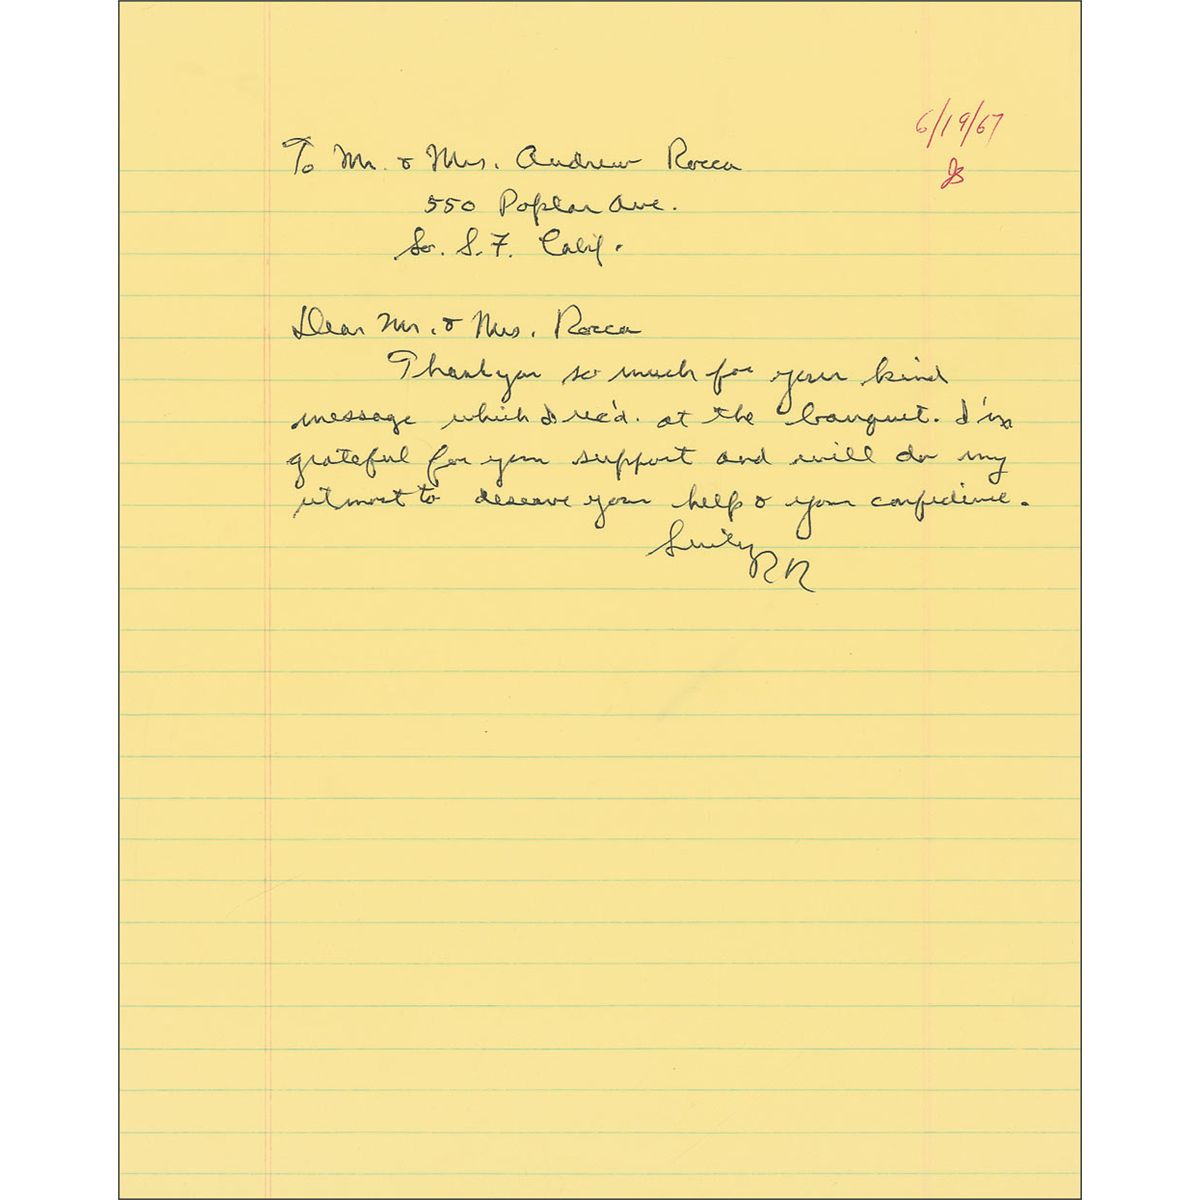 6/19/67
To Mr. & Mrs. Andrew Rocca
JB
550 Poplar Ave.
So. S.F. Calif.
Dear Mr. & Mrs. Rocca
Thank you so much for your kind
message which I rec'd. at the banquet. I'm
grateful for your support and will do my
utmost to deserve your help & your confidence.
Sincerely
RR